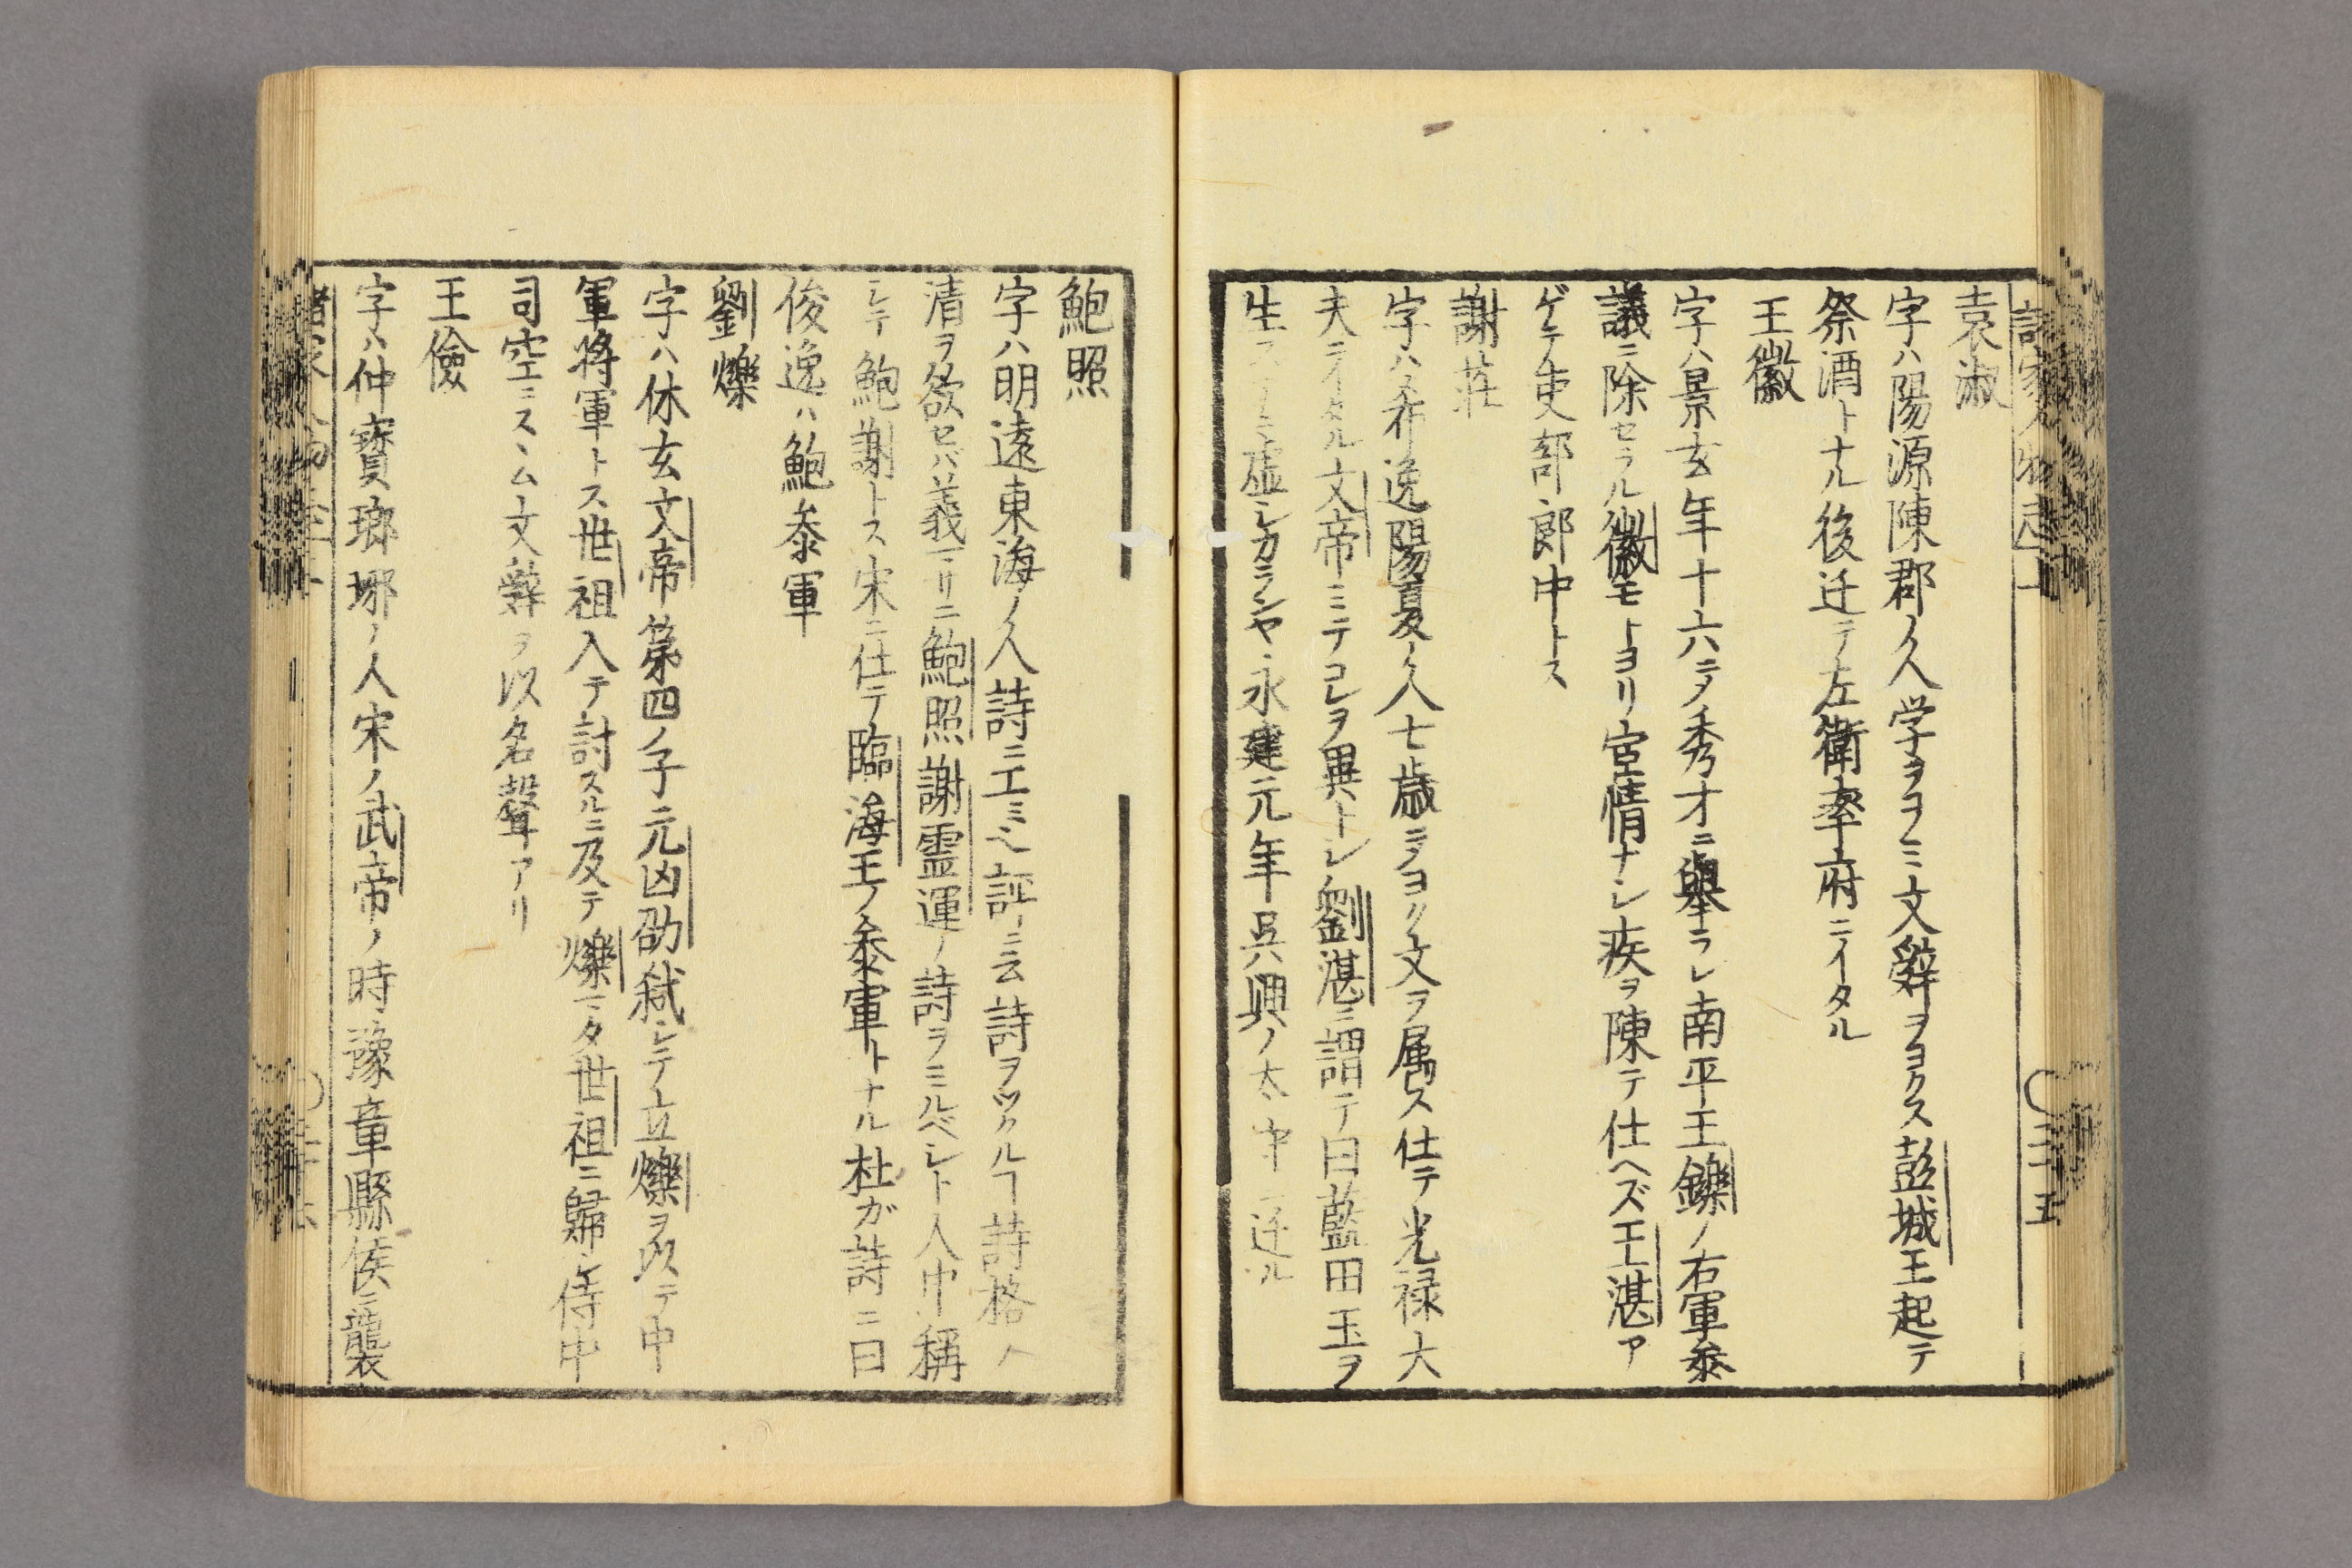 袁淑
字ハ陽源陳郡ノ人学ヲヨミ文辞ヲヨクス彭城王起テ
祭酒トナル後迁テ左衛率府ニイタル
王徽
字ハ景玄年十六ニメ秀才ニ擧ラレ南平王鑠ノ右軍参
議ニ除セラル徽モトヨリ宦情ナシ疾ヲ陳テ仕ヘズ王湛ア
ゲテ吏部郎中トス
謝莊
字ハ希逸陽夏ノ人七歳ニメヨク文ヲ属ス仕テ光禄大
夫ニイタル文帝ミテコレヲ異トシ劉湛ニ謂テ曰藍田玉ヲ
生ス虚シカランヤ永建元年呉興ノ太守迁ル
鮑照
字ハ明遠東海ノ人詩ニ工ミ也評ニ云詩ヲツクルヿ詩格ノ
清ヲ欲セバ義ヨリニ鮑照謝霊運ノ詩ヲミルベシト人中稱
シテ鮑謝トス宋ニ仕テ臨海王ノ参軍トナル杜ガ詩ニ曰
俊逸ハ鮑參軍
劉爍
字ハ休玄文帝第四ノ子元凶劭弑シテ立爍ヲ以テ中
軍将軍トス世祖入テ討スルニ及テ爍マタ世祖ニ歸シ侍中
司空ニスヽム文辞ヲ以名聲アリ
王儉
字ハ仲寳瑯琊ノ人宋ノ武帝ノ時豫章縣侯ニ襲